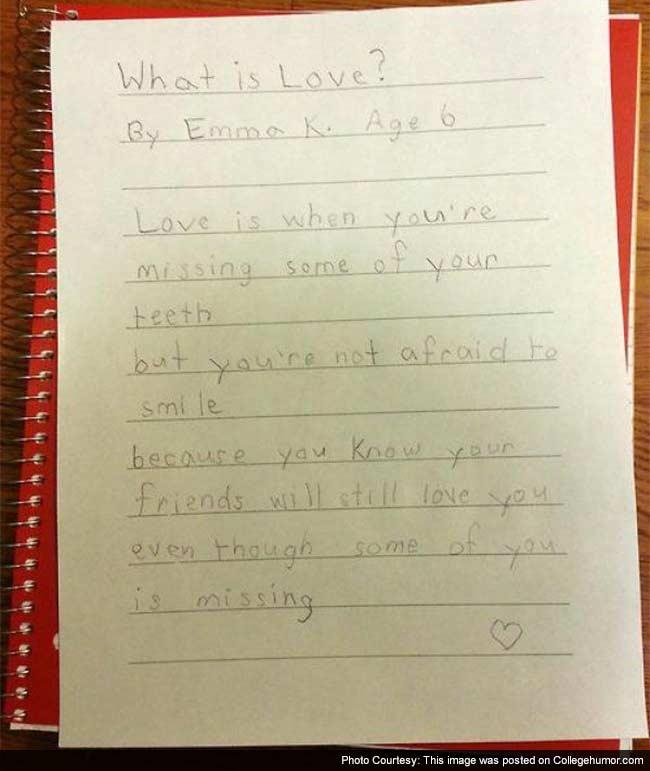 What is Love?
By Emma K. Age 6
Love is when you're
missing some of your
teeth
but you're not afraid to
smile
because you know your
friends will still love you
even though some of you
is missing
Photo Courtesy: This image was posted on Collegehumor.com